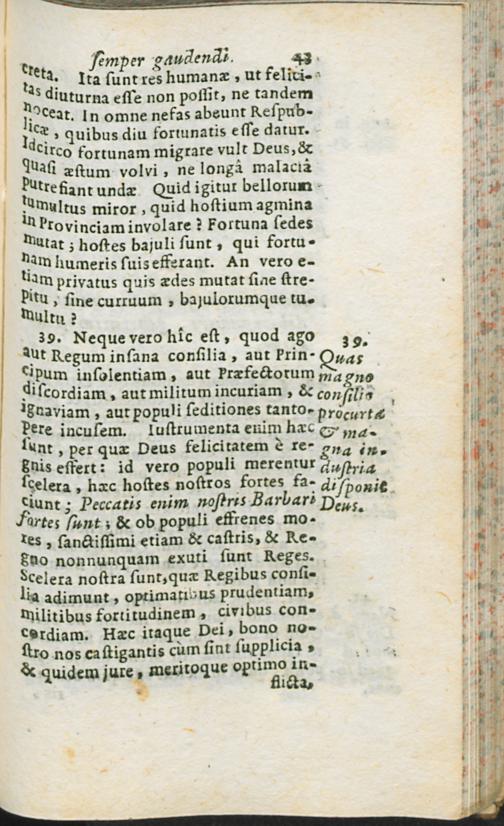 semper gaudendi. 43
creta. Ita sunt res humanæ, ut felici-
tas diuturna esse non possit, ne tandem
noceat. In omne nefas abeunt Respub-
licæ, quibus diu fortunatis esse datur.
Idcirco fortunam migrare vult Deus, &
quasi æstum volvi, ne longâ malaciâ
putrefiant undæ Quid igitur bellorum
tumultus miror, quid hostium agmina
in Provinciam involare? Fortuna sedes
mutat; hostes bajuli sunt, qui fortu-
nam humeris suis efferant. An vero e-
tiam privatus quis ædes mutat sine stre-
pitu, sine curruum, bajulorumque tu-
multu?
39. Neque vero hîc est, quod ago
aut Regum insana consilia, aut Prin-
cipum insolentiam, aut Præfectorum
discordiam, aut militum incuriam, &
ignaviam, aut populi seditiones tanto-
pere incusem. Iustrumenta enim hæc
sunt, per quæ Deus felicitatem è re-
gnis effert: id vero populi merentur
scelera, hæc hostes nostros fortes fa-
ciunt; Peccatis enim nostris Barbari
fortes sunt; & ob populi effrenes mo-
res, sanctissimi etiam & castris, & Re-
gno nonnunquam exuti sunt Reges.
Scelera nostra sunt, quæ Regibus consi-
lia adimunt, optimatibus prudentiam,
militibus fortitudinem, civibus con-
cordiam. Hæc itaque Dei, bono no-
stro nos castigantis cùm sint supplicia,
& quidem jure, meritoque optimo in-
flicta,
39.
Quas
magno
consilio
procurta
& ma-
gna in-
dustria
disponit
Deus.